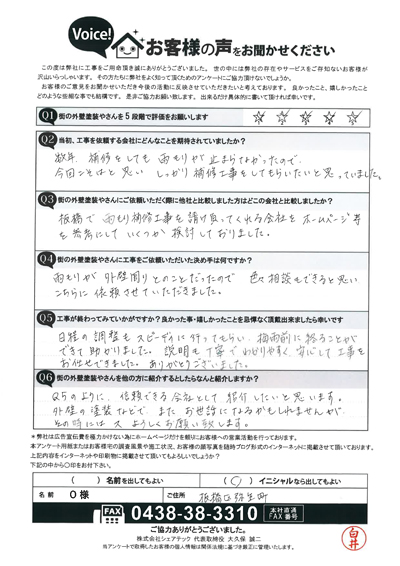 Voice!
お客様の声をお聞かせください
この度は弊社に工事をご用命頂き誠にありがとうございました。世の中には弊社の存在やサービスをご存知ないお客様が
沢山いらっしゃいます。その方たちに弊社をよく知って頂くためのアンケートにご協力頂けないでしょうか。
お客様のご意見をお聞かせいただき今後の活動に反映させていただきたいと考えております。良かったこと、嬉しかったこと
どのような些細な事でも結構です。是非ご協力お願い致します。出来るだけ具体的に書いて頂ければ幸いです。
Q1 街の外壁塗装やさんを5段階で評価をお願いします
Q2 当初、工事を依頼する会社にどんなことを期待されていましたか?
数年、補修をしても雨もりが止まらなかったので、
今回こそはと思い しっかり補修工事をしてもらいたいと思っていました。
Q3 街の外壁塗装やさんにご依頼いただく際に他社と比較しました方はどこの会社と比較しましたか?
板橋で雨もり補修工事を請け負ってくれる会社をホームページ等
を参考にしていくつか検討しておりました。
Q4 街の外壁塗装やさんに工事をご依頼いただいた決め手は何ですか?
雨もりが外壁周りとのことだったので 色々相談もできると思い
こちらに依頼させていただきました。
Q5 工事が終わってみていかがですか?良かった事・嬉しかったことを忌憚なく頂戴出来ましたら幸いです
日程の調整もスピーディに行ってもらい、梅雨前に終ることが
できて助かりました。説明も丁寧でわかりやすく、安心して工事を
お任せできました。ありがとうございました。
Q6 街の外壁塗装やさんを他の方に紹介するとしたらなんと紹介しますか?
Q5のように、信頼できる会社として紹介したいと思います。
外壁の塗装などで、またお世話になるかもしれませんが、
その時には よろしくお願い致します。
*弊社は広告宣伝費を極力かけない為にホームページだけを頼りにお客様への営業活動を行っております。
本アンケート用紙またはお客様宅の調査風景や施工状況、お客様の顔写真を随時ブログ形式のインターネットに掲載させて頂いております。
上記内容をインターネットや印刷物に掲載させて頂いてもよろしいでしょうか?
下記の中から〇印をお付下さい。
( )名前を出してもよい (○)イニシャルなら出してもよい
名前 O様 ご住所 板橋区弥生町
FAX 0438-38-3310 本社直通FAX番号
ご協力ありがとうございました。
株式会社シェアテック 代表取締役 大久保 誠二
当アンケートで取得したお客様の個人情報は関係法規に基づき厳正に管理いたします。
白井